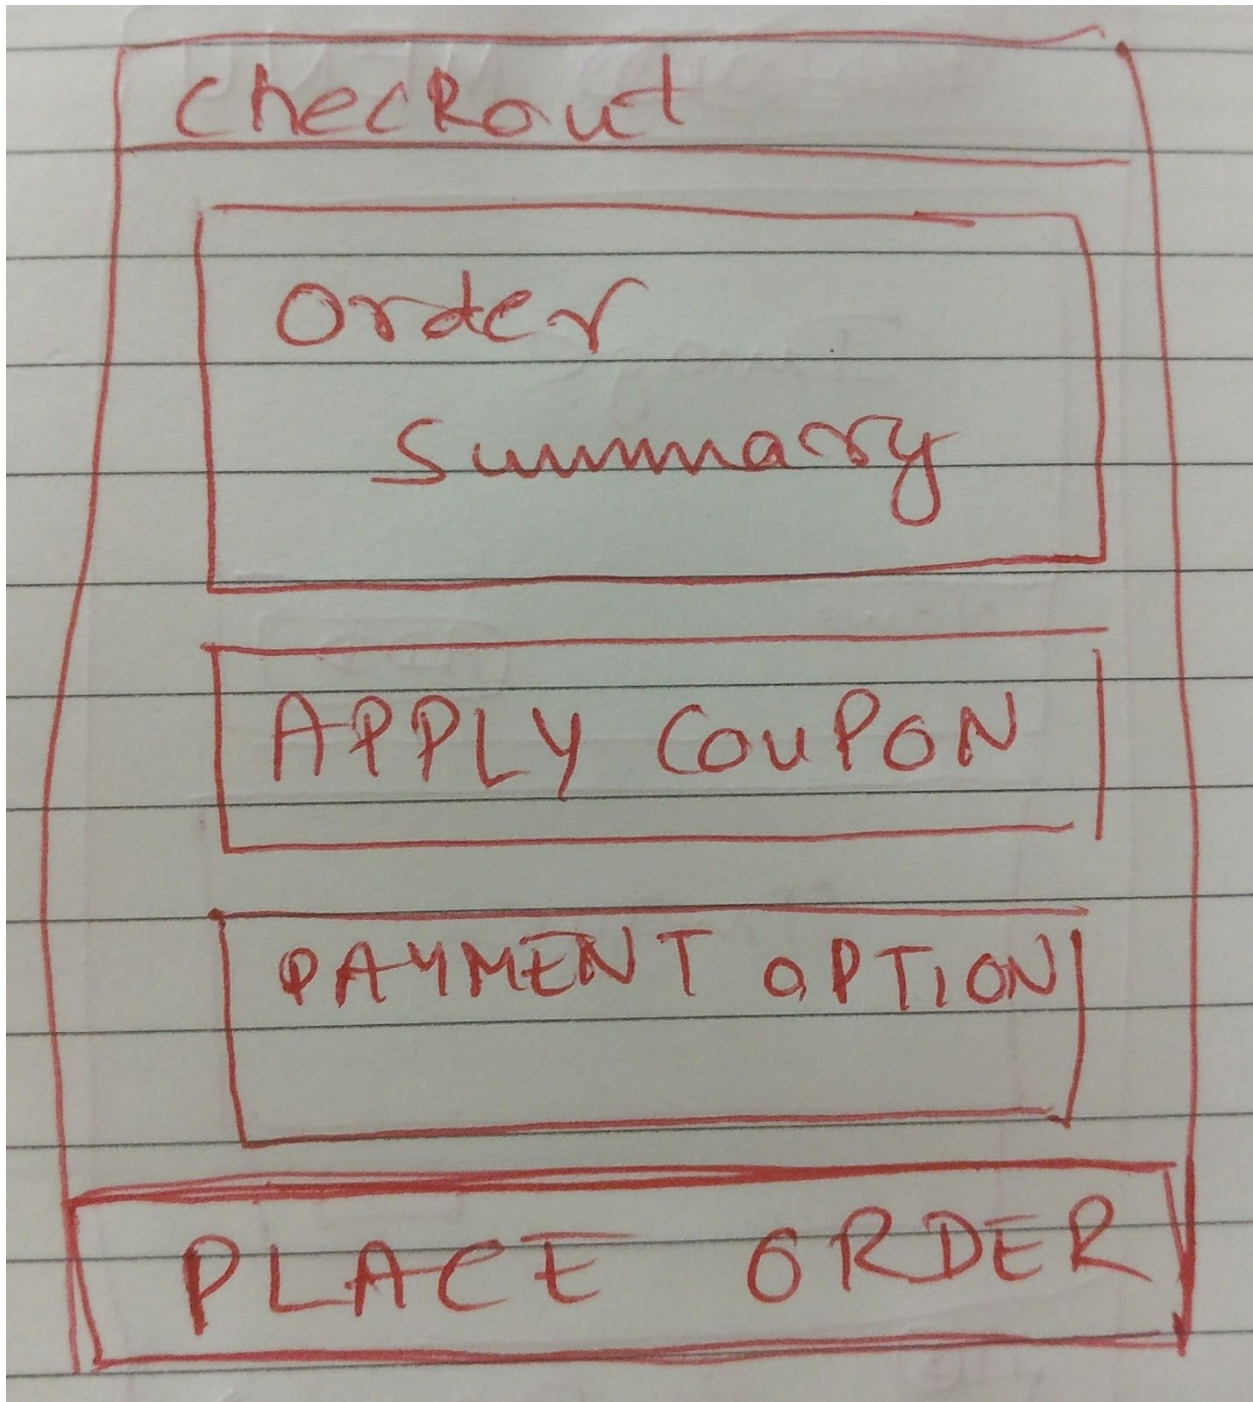 Checkout
Order
Summary
APPLY COUPON
PAYMENT OPTION
PLACE ORDER